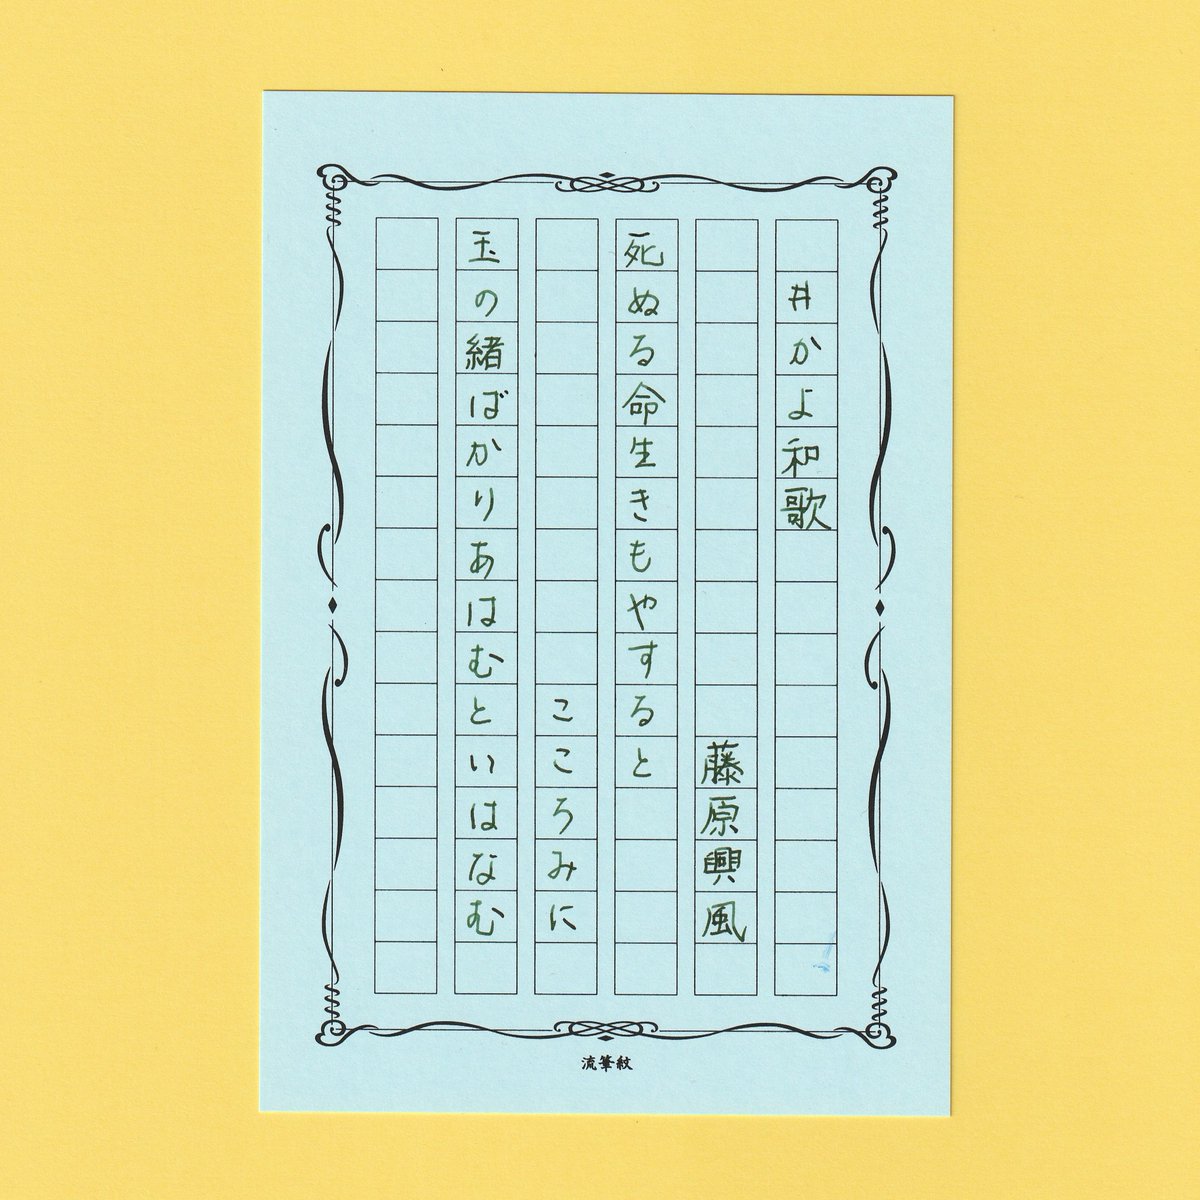 #かよ和歌
藤原興風
死ぬる命生きもやすると
こころみに
玉の緒ばかりあはむといはなむ
流筆紋